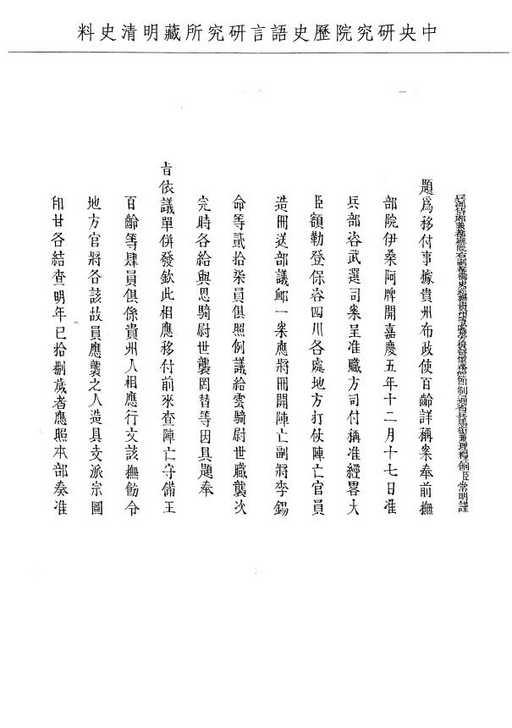 中央研究院歷史語言研究所藏明清史料
兵部侍郎兼都察院右副都御史巡撫貴州兼理糧餉臣常明謹
題爲移付事據貴州布政使百齡詳稱案奉前撫
部院伊桑阿牌開嘉慶五年十二月十七日准
兵部咨武選司案呈准職方司付稱准經畧大
臣額勒登保咨四川各處地方打仗陣亡官員
造冊送部議卹一案應將冊開陣亡副將李錫
命等貳拾柒員俱照例議給雲騎尉世職襲次
完時各給與恩騎尉世襲罔替等因具題奉
旨依議單併發欽此相應移付前來查陣亡守備王
百齡等肆員俱係貴州人相應行文該撫飭令
地方官將各該故員應襲之人造具支派宗圖
印甘各結查明年已拾捌歲者應照本部奏准